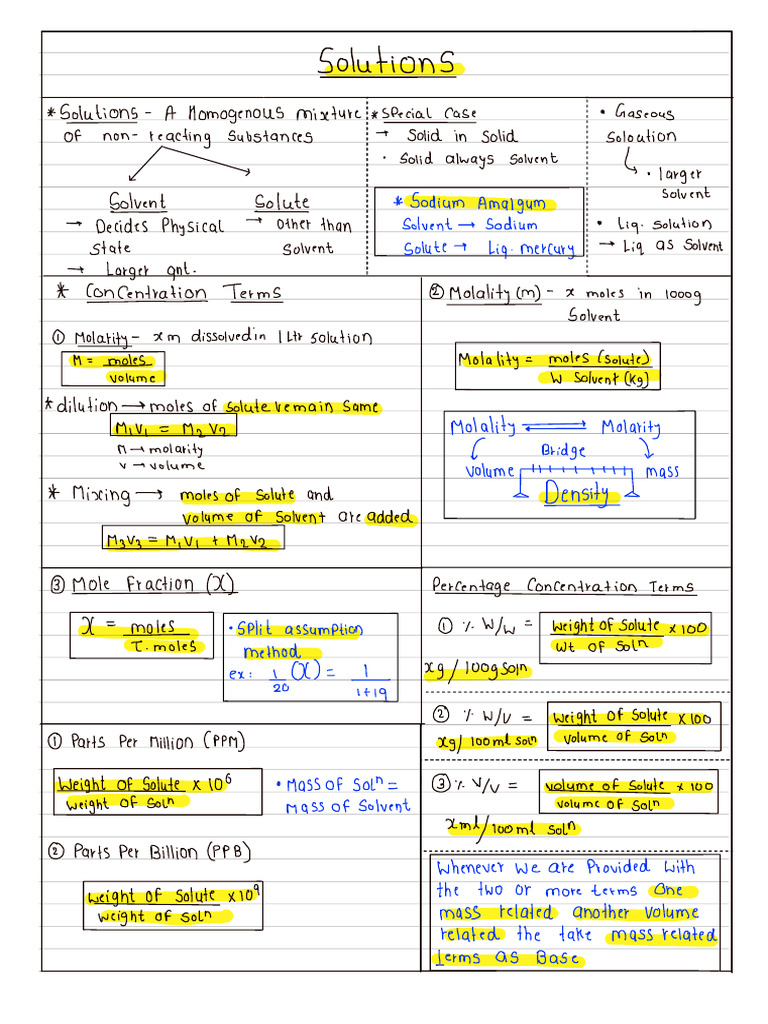 Solutions
* Solutions - A Homogenous mixture
of non-reacting Substances
Solvent
→ Decides Physical
State
→ Larger qnt.
Solute
→ Other than
Solvent
* Special Case
→ Solid in Solid
• Solid always Solvent
* Sodium Amalgum
Solvent → Sodium
Solute → Liq. mercury
• Gaseous
Soloution
• larger
Solvent
• Liq. Solution
→ Liq as Solvent
* Concentration Terms
① Molarity - x m dissolved in 1 Ltr Solution
M = moles
volume
* dilution → moles of solute remain same
M₁V₁ = M₂V₂
M → molarity
V → volume
* Mixing → moles of Solute and
volume of Solvent are added
M₃V₃ = M₁V₁ + M₂V₂
② Molality (m) - x moles in 1000g
Solvent
Molality = moles (Solute)
W Solvent (Kg)
Molality ⇌ Molarity
Bridge
volume mass
Density
③ Mole Fraction (X)
X = moles
T. moles
• Split assumption
method
ex: 1/20 (X) = 1/1+19
Percentage Concentration Terms
① % W/W = Weight of Solute × 100
Wt of Solⁿ
xg/100g Solⁿ
② % W/V = Weight of Solute × 100
volume of Solⁿ
xg/100ml Solⁿ
③ % V/V = volume of Solute × 100
volume of Solⁿ
x ml/100ml Solⁿ
① Parts Per Million (PPM)
Weight of Solute × 10⁶
weight of Solⁿ
• Mass of Solⁿ =
Mass of Solvent
② Parts Per Billion (PPB)
weight of Solute × 10⁹
weight of Solⁿ
Whenever we are Provided with
the two or more terms One
mass related another Volume
related the take mass related
terms as Base